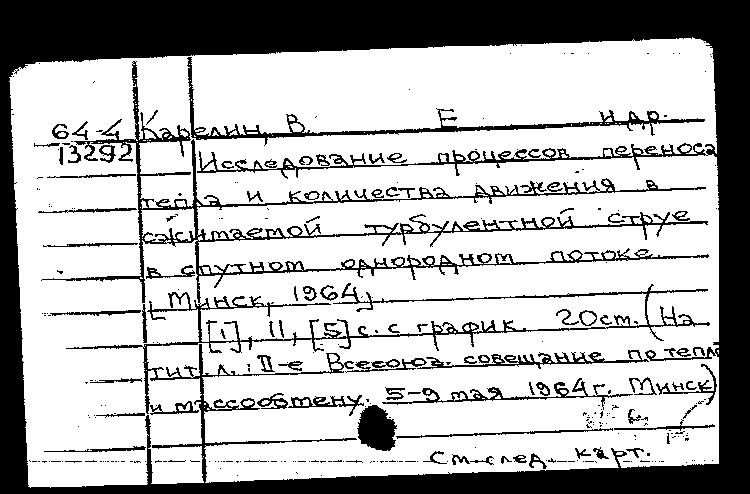 64-4 Карелин, В. Е и др.
13292 Исследование процессов переноса
тепла и количества движения в
сжимаемой турбулентной струе
в спутном однородном потоке.
[Минск, 1964].
[1], 11, [5] с. с график. 20 см. (На
тит. л.: II-е Всесоюз. совещание по тепло
и массообмену. 5-9 мая 1964 г. Минск)
См. след. карт.